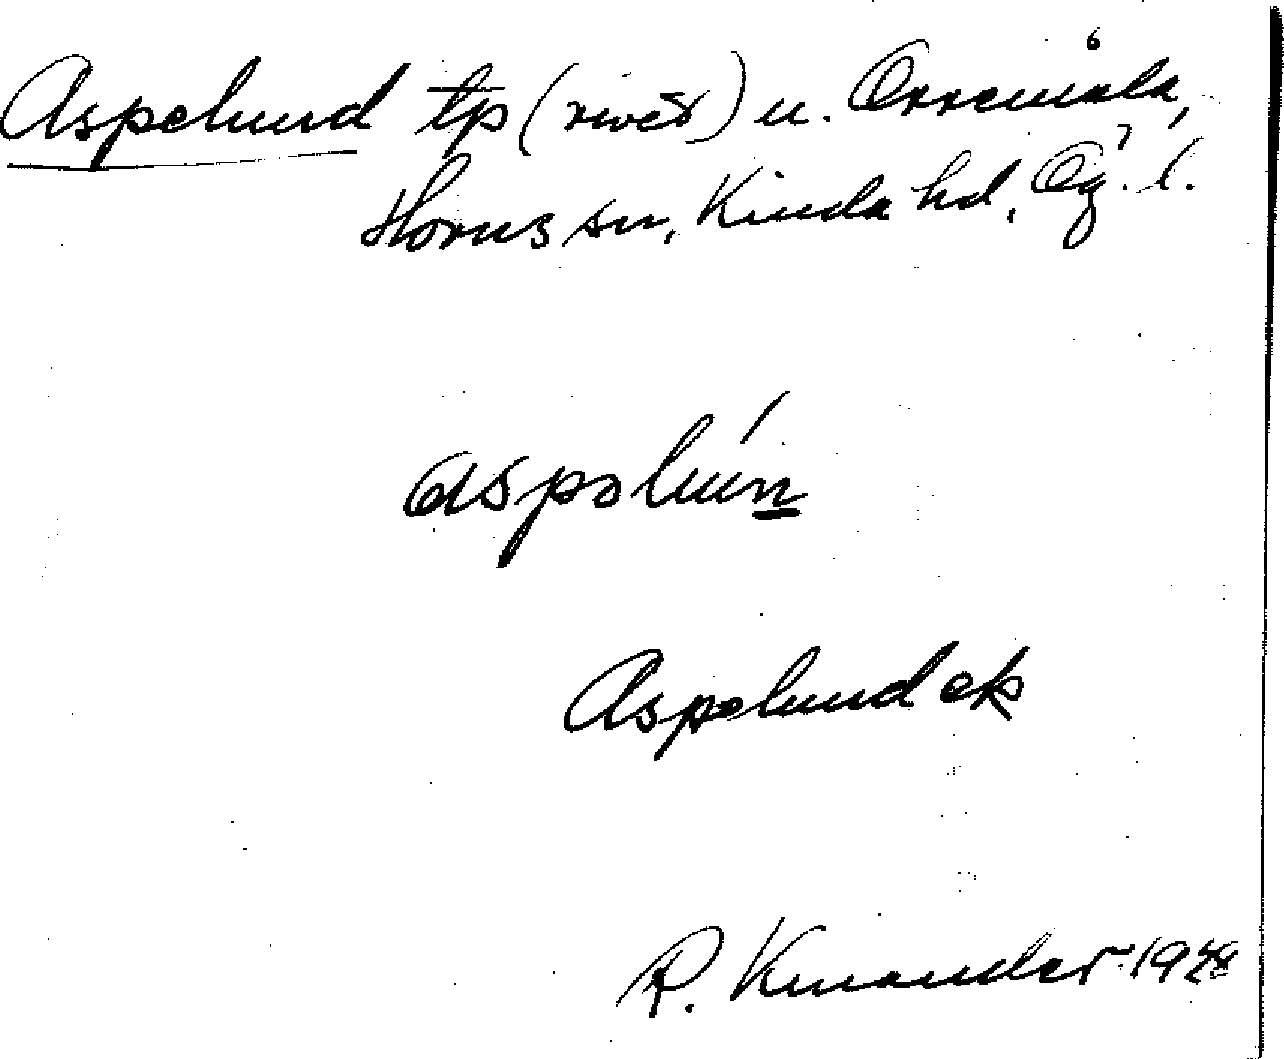 Aspelund tp (rivet) u. Orremåla,
Horns sn, Kinda hd, Ög. l.
aspəlún
Aspelund ek
R. Kinander 1928